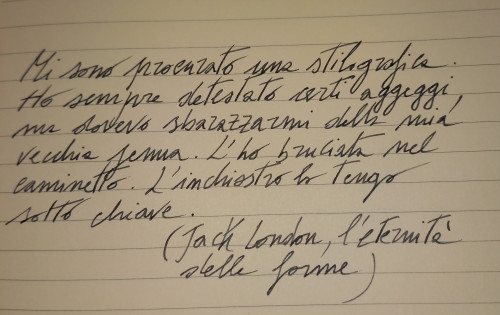 Mi sono procurato una stilografica.
Ho sempre detestato certi aggeggi,
ma dovevo sbarazzarmi della mia
vecchia penna. L'ho bruciata nel
caminetto. L'inchiostro lo tengo
sotto chiave.
(Jack London, l'eternità
delle forme)